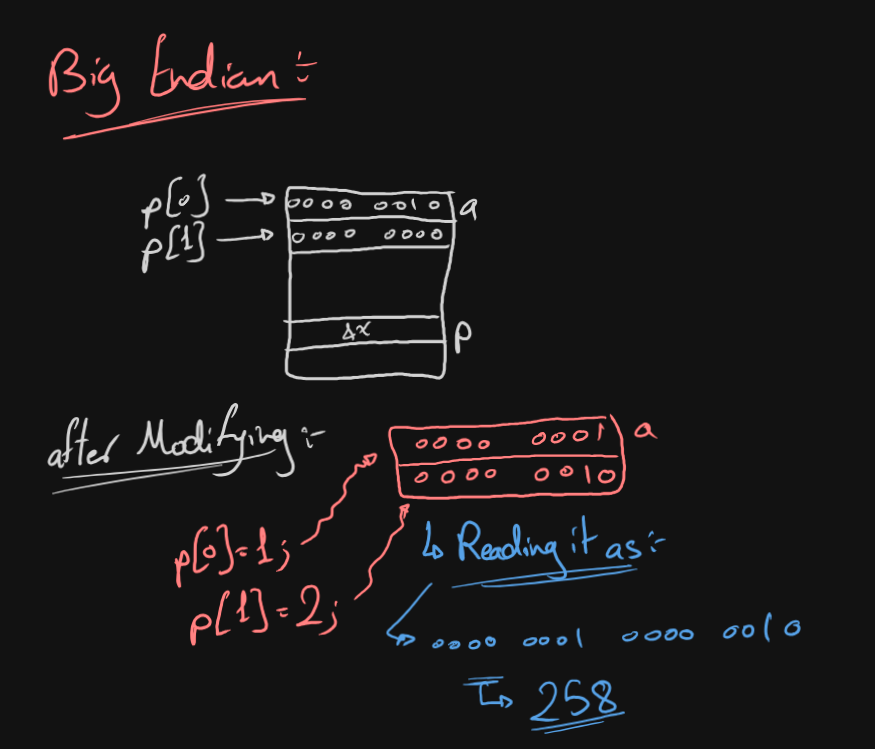 Big Endian :-
p[0] → 0000 0010 a
p[1] → 0000 0000
4x p
after Modifying :-
0000 0001 a
0000 0010
p[0]=1;
p[1]=2;
↳ Reading it as :-
0000 0001 0000 0010
↳ 258